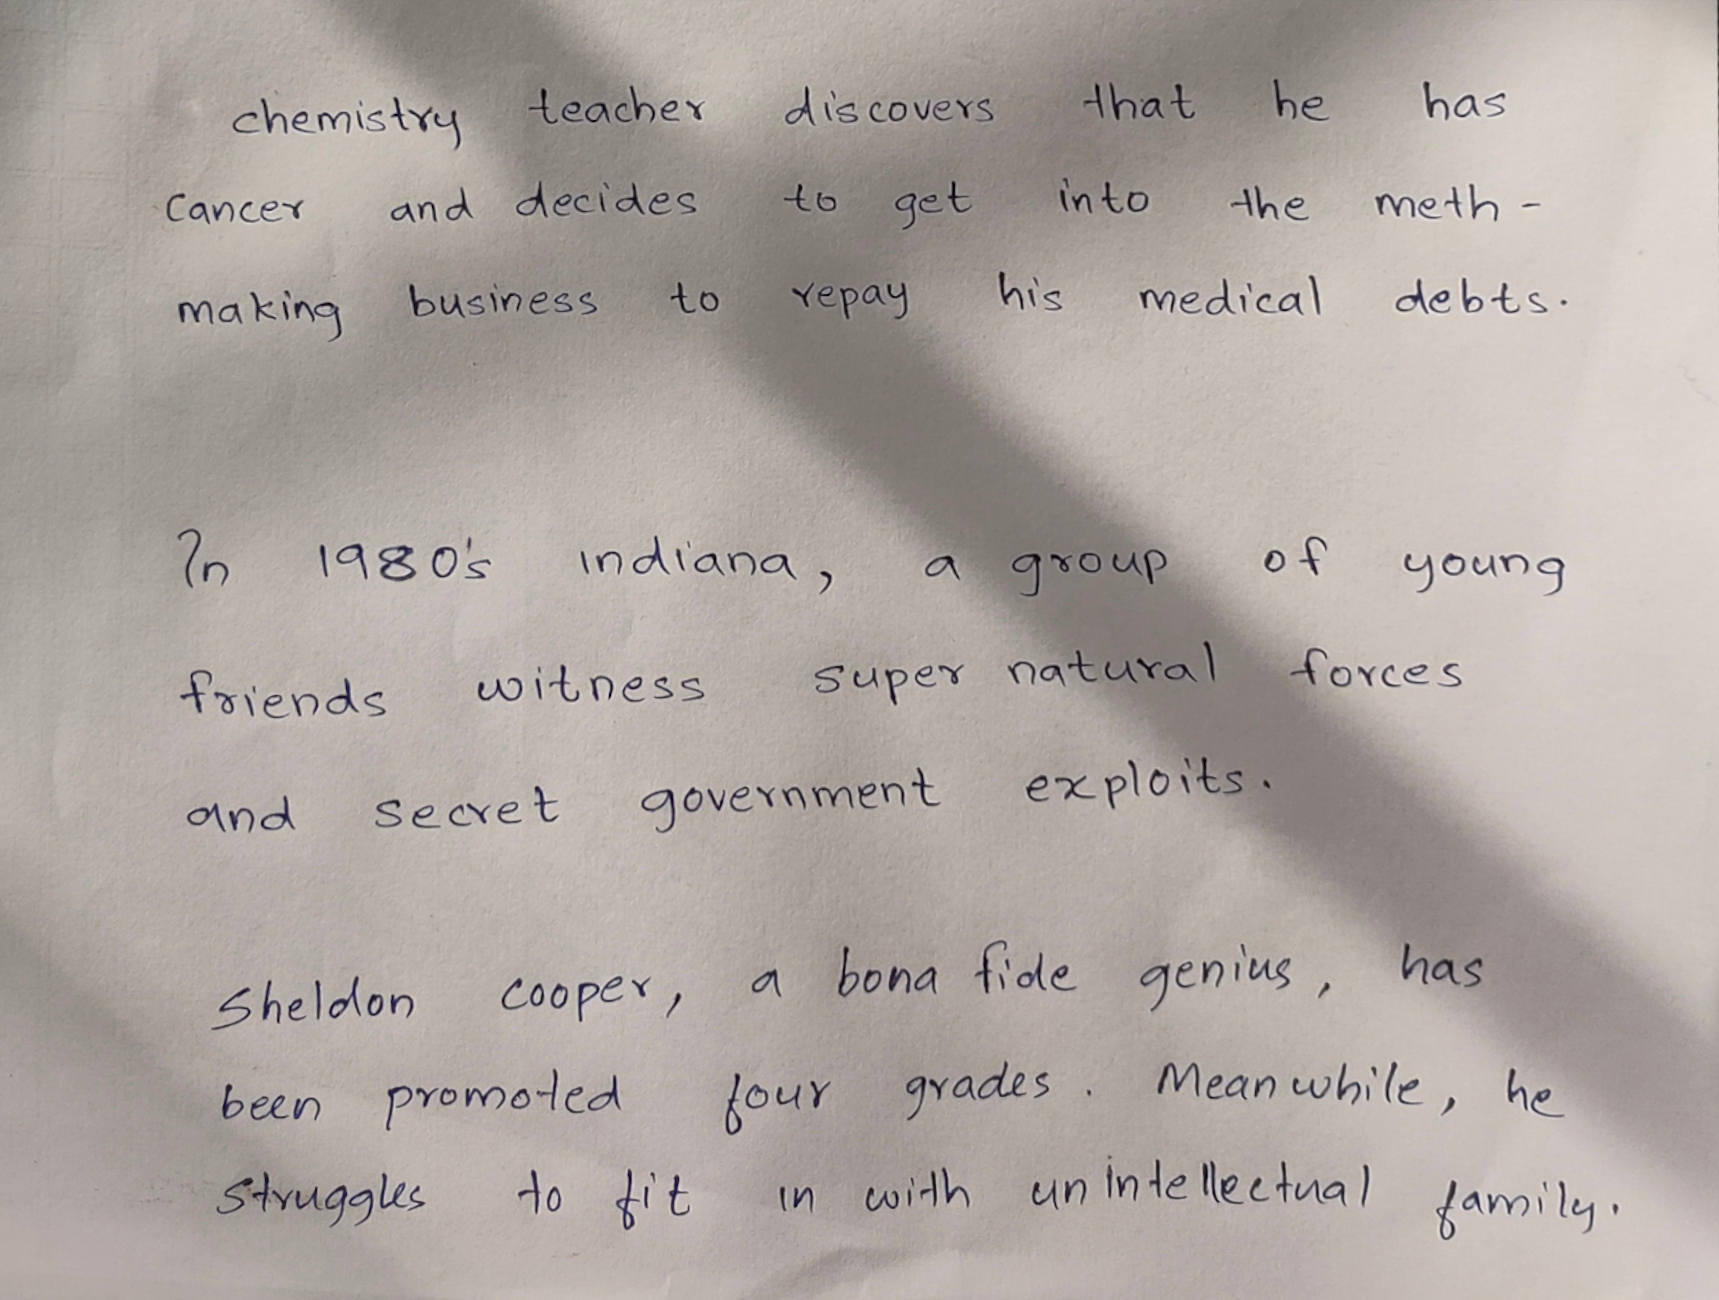 chemistry teacher discovers that he has
cancer and decides to get into the meth-
making business to repay his medical debts.
In 1980's indiana, a group of young
friends witness super natural forces
and secret government exploits.
Sheldon cooper, a bona fide genius, has
been promoted four grades. Meanwhile, he
struggles to fit in with unintellectual family.